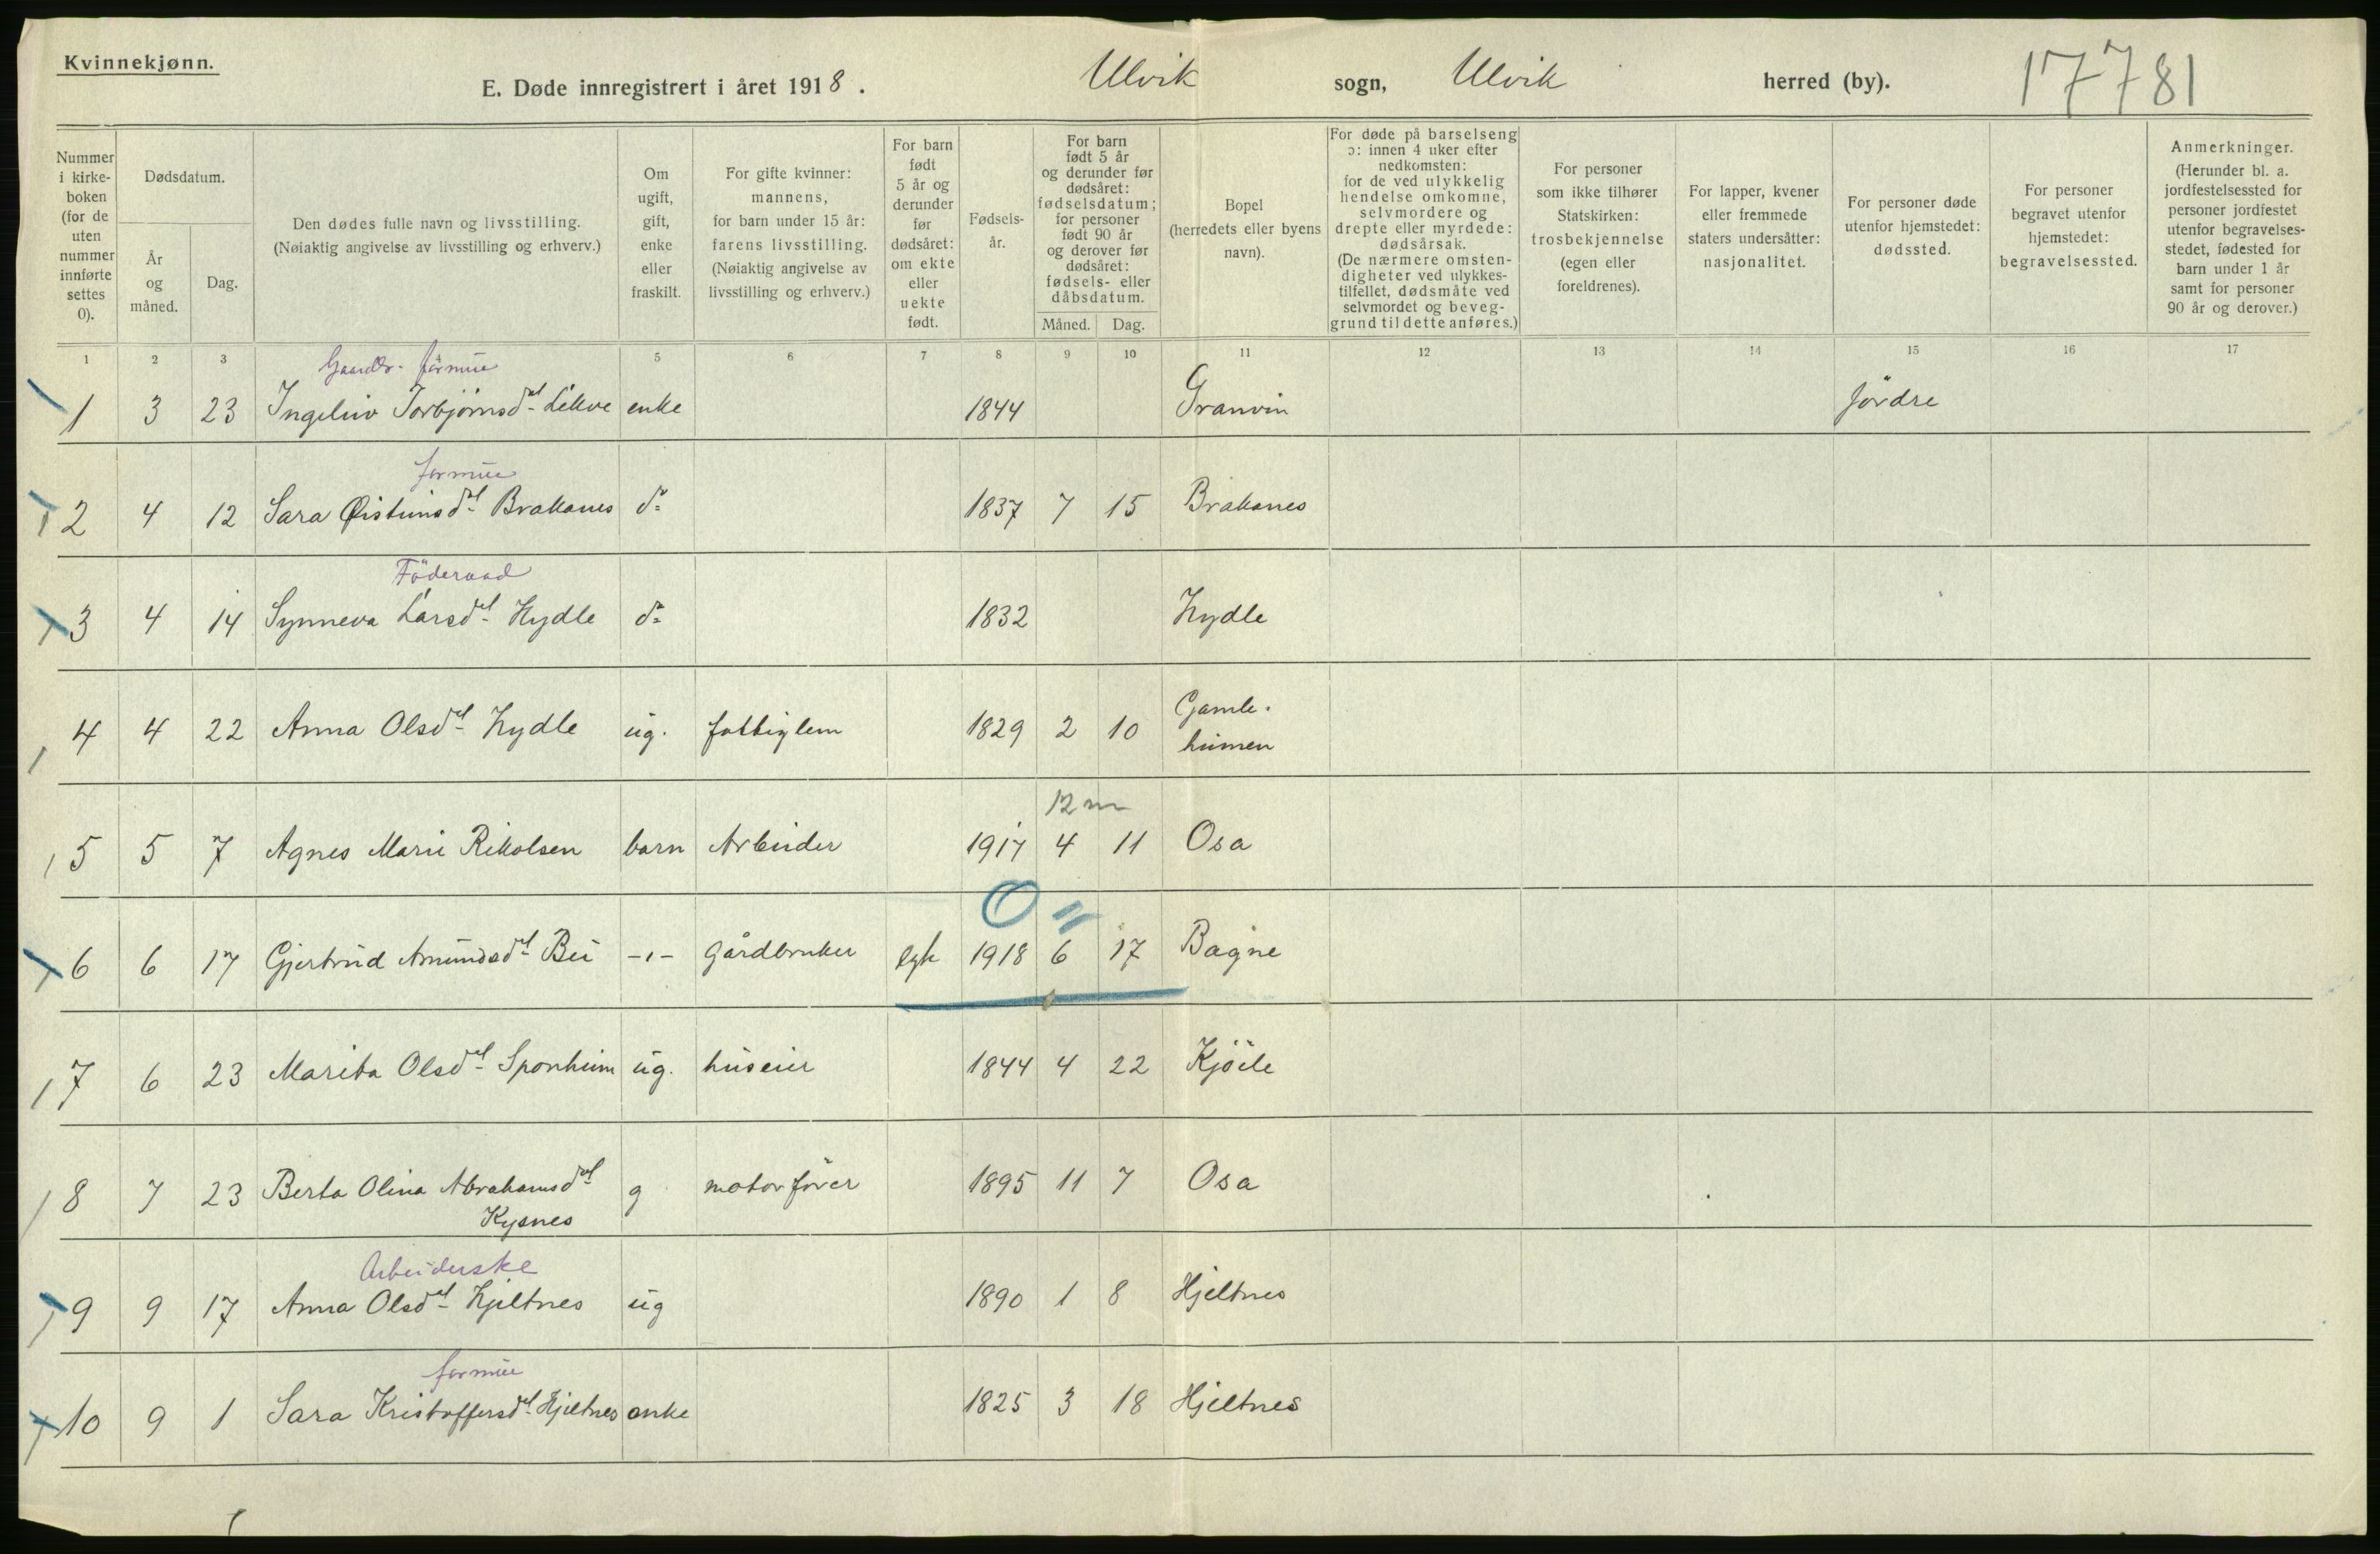 Kvinnekjønn.
E. Døde innregistrert i året 1918. Ulvik sogn, Ulvik herred (by). 17781
Nummer i kirke-boken (for de uten nummer innførte settes 0).
Dødsdatum.
År og måned.
Dag.
Den dødes fulle navn og livsstilling.
(Nøiaktig angivelse av livsstilling og erhverv.)
Om ugift, gift, enke eller fraskilt.
For gifte kvinner: mannens, for barn under 15 år: farens livsstilling. (Nøiaktig angivelse av livsstilling og erhverv.)
For barn født 5 år og derunder før dødsåret: om ekte eller uekte født.
Fødsels-år.
For barn født 5 år og derunder før dødsåret: fødselsdatum; for personer født 90 år og derover før dødsåret: fødsels- eller dåbsdatum.
Måned. Dag.
Bopel (herredets eller byens navn).
For døde på barselseng ɔ: innen 4 uker efter nedkomsten: for de ved ulykkelig hendelse omkomne, selvmordere og drepte eller myrdede: dødsårsak. (De nærmere omsten-digheter ved ulykkes-tilfellet, dødsmåte ved selvmordet og beveg-grund til dette anføres.)
For personer som ikke tilhører Statskirken: trosbekjennelse (egen eller foreldrenes).
For lapper, kvener eller fremmede staters undersåtter: nasjonalitet.
For personer døde utenfor hjemstedet: dødssted.
For personer begravet utenfor hjemstedet: begravelsessted.
Anmerkninger. (Herunder bl. a. jordfestelsessted for personer jordfestet utenfor begravelses-stedet, fødested for barn under 1 år samt for personer 90 år og derover.)
1 2 3 5 6 7 8 9 10 11 12 13 14 15 16 17
Gaardbr. formue
1 3 23 Ingeliv Torbjørnsdtl Lekve enke 1844 Granvin Jördre
formue
2 4 12 Sara Øistinsdtl Brakanes do 1837 7 15 Brakanes
Föderaad
3 4 14 Synneva Larsdtl Hydle do 1832 Hydle
4 4 22 Anna Olsdtl Hydle ug. fattiglem 1829 2 10 Gamle.
humen
12 m
5 5 7 Agnes Marie Rikolsen barn Arbeider 1917 4 11 Osa
0
6 6 17 Gjertrud Amundsdtl Bu -"- Gårdbruker egte 1918 6 17 Bagne
7 6 23 Marita Olsdtl Sponheim ug. huseier 1844 4 22 Kjöile
8 7 23 Berta Olina Abrahamsdtl g motorförer 1895 11 7 Osa
Kysnes
Arbeiderske
9 9 17 Anna Olsdtl Hjeltnes ug 1890 1 8 Hjeltnes
formue
10 9 1 Sara Kristoffersdtl Hjeltnes enke 1825 3 18 Hjeltnes